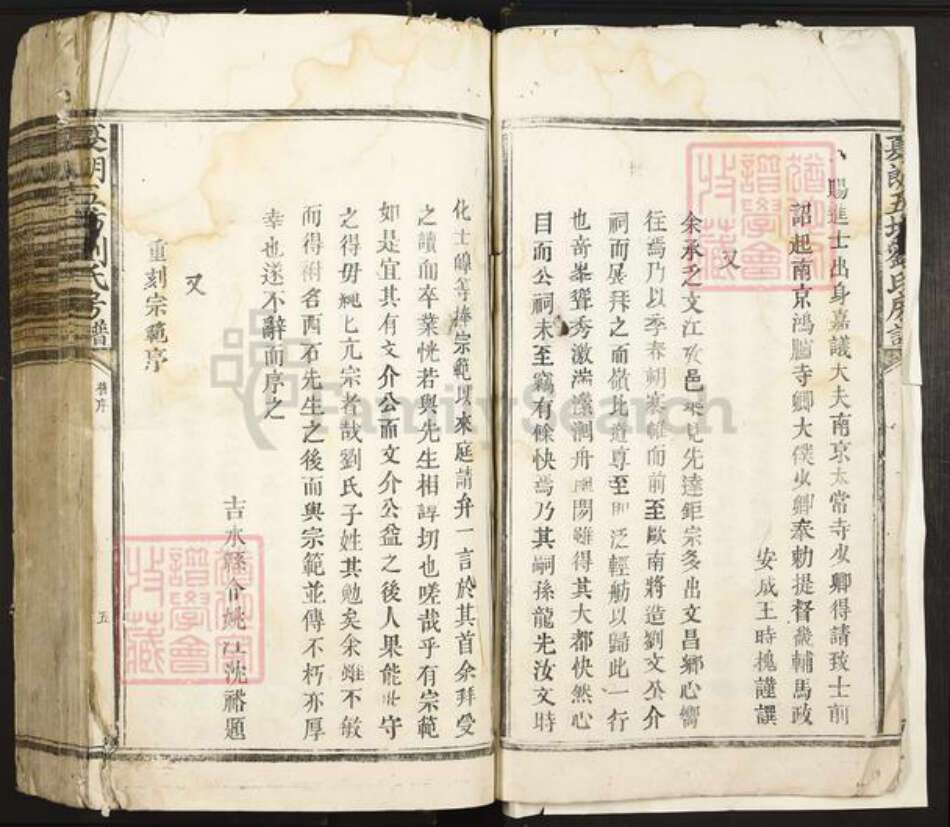 賜進士出身嘉議大夫南京太常寺少卿得請致士前
詔起南京鴻臚寺卿大僕少卿奉勅提督畿輔馬政
安成王時槐謹譔
又
余承乏文江攷邑乘見先達鉅宗多出文昌鄉心嚮
往焉乃以季春朔褰帷而前至歐南將造劉文介
祠而展拜之而嶺北道尊至即泛輕舫以歸此一行
也奇峯聳秀激湍濚洄舟輿閱雖得其大都快然心
目而公祠未至竊有餘快焉乃其嗣孫龍先汝文時
化士皥等捧宗範以來庭請弁一言於其首余拜受
之讀而卒業恍若與先生相諄切也嗟哉乎有宗範
如是宜其有文介公而文介公益之後人果能守
之得毋繩亢宗者哉劉氏子姓其勉矣余雖不敏
而得附名西石先生之後而與宗範並傳不朽亦厚
幸也遂不辭而序之
吉水縣令姚江沈裕題
又
重刻宗範序
五
FamilySearch